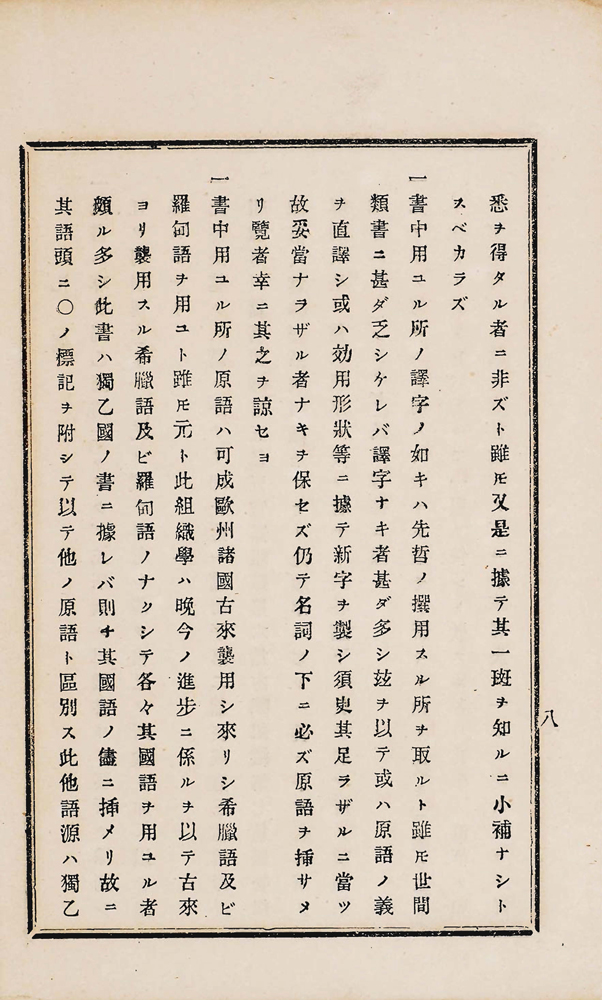 悉ヲ得タル者ニ非ズト雖モ又是ニ據テ其一斑ヲ知ルニ小補ナシト
スベカラズ
一書中用ユル所ノ譯字ノ如キハ先哲ノ撰用スル所ヲ取ルト雖モ世間
類書ニ甚ダ乏シケレバ譯字ナキ者甚ダ多シ玆ヲ以テ或ハ原語ノ義
ヲ直譯シ或ハ効用形狀等ニ據テ新字ヲ製シ須臾其足ラザルニ當ツ
故妥當ナラザル者ナキヲ保セズ仍テ名詞ノ下ニ必ズ原語ヲ挿サメ
リ覽者幸ニ其之ヲ諒セヨ
一書中用ユル所ノ原語ハ可成歐州諸國古來襲用シ來リシ希臘語及ビ
羅甸語ヲ用ユト雖モ元ト此組織學ハ晩今ノ進步ニ係ルヲ以テ古來
ヨリ襲用スル希臘語及ビ羅甸語ノナクシテ各々其國語ヲ用ユル者
頗ル多シ此書ハ獨乙國ノ書ニ據レバ則チ其國語ノ儘ニ挿メリ故ニ
其語頭ニ〇ノ標記ヲ附シテ以テ他ノ原語ト區別ス此他語源ハ獨乙
八